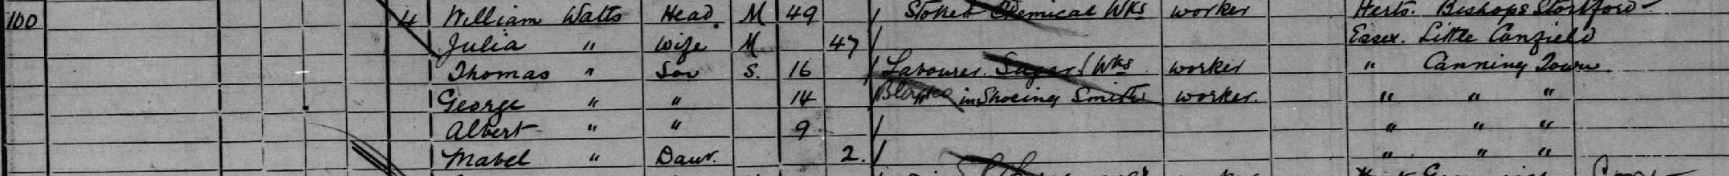 100 4 William Watts Head M 49 Stoker Chemical Wks worker Herts. Bishops Stortford
Julia " Wife M 47 Essex. Little Canfield
Thomas " Son S. 16 Labourer Sugar Wks worker " Canning Town.
George " " 14 in Shoeing Smiths worker. " " "
Albert " " 9 " " "
Mabel " Daur. 2. " " "